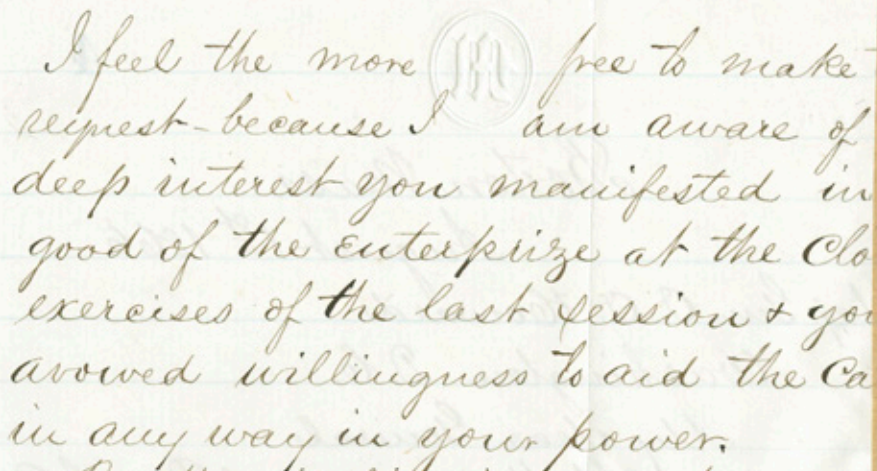 I feel the more free to make
request - because I am aware of
deep interest you manifested in
good of the enterprize at the Clo
exercises of the last session & you
avowed willingness to aid the Ca
in any way in your power.